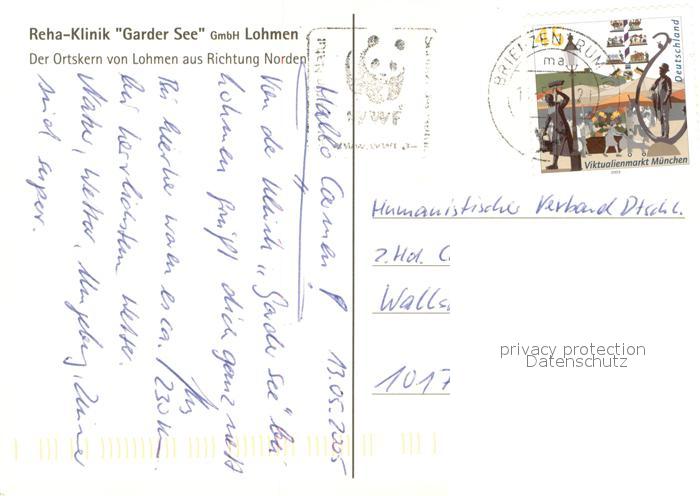 Reha-Klinik "Garder See" GmbH Lohmen
Der Ortskern von Lohmen aus Richtung Norden
13.05.2005
Hallo Carmen!
Von der Klinik "Garder See" bei
Lohmen grüßt dich ganz nett
Bis hierher waren es ca. 230 km.
bei herrlichstem Wetter.
Natur, Wetter, Umgebung, Zimmer
sind super.
WWF
BRIEFZENTRUM
Deutschland
45
Viktualienmarkt München
2003
Humanistischer Verband Dtschl.
z.Hd. C
Walls
1017
privacy protection
Datenschutz